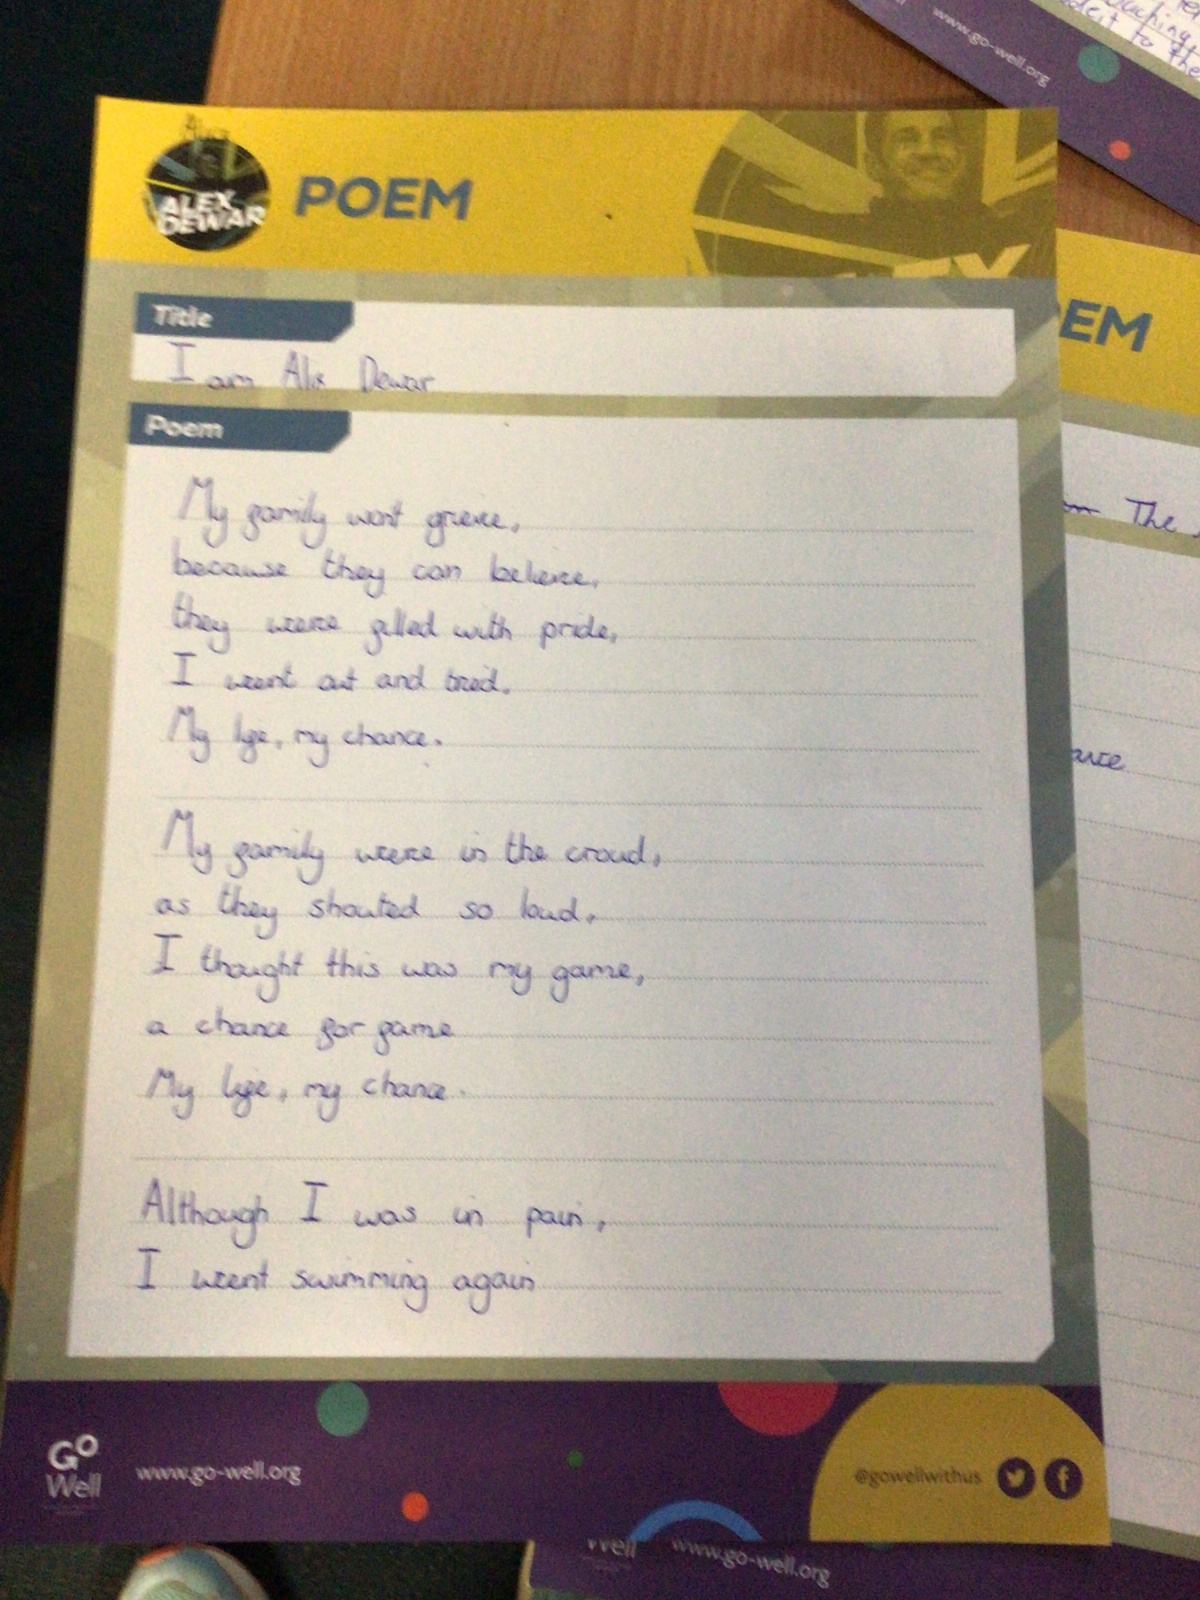 www.go-well.org
to the
ALEX
DEWAR
POEM
Title
I am Alix Dewar
Poem
My family wont grieve,
because they can believe,
they were filled with pride,
I went out and tried.
My life, my chance.
My family were in the croud,
as they shouted so loud,
I thought this was my game,
a chance for fame
My life, my chance.
Although I was in pain,
I went swimming again
Go
Well
www.go-well.org
@gowellwithus
EM
The
Well
www.go-well.org